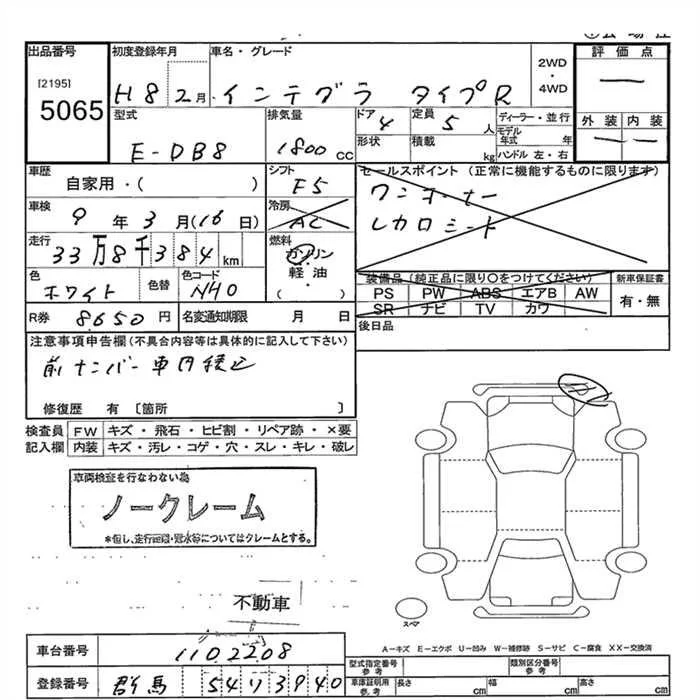 出品番号
[2195]
5065
初度登録年月
H8 2月
車名・グレード
インテグラ タイプR
2WD
・
4WD
評価点
―
外装 内装
― ―
型式
E-DB8
排気量
1800 CC
ドア
4
定員
5 人
形状
積載
kg
ディーラー・並行
モデル年式 年
ハンドル 左・右
車歴
自家用・( )
シフト
F5
セールスポイント (正常に機能するものに限ります)
ワンオーナー
レカロシート
車検
9年3月(16日)
冷房
AC
走行
33万8千384km
燃料
ガソリン
軽油
・( )
色
ホワイト
色替
色コード
NH0
装備品 (純正品に限り〇をつけてください)
PS PW ABS エアB AW
SR ナビ TV カワ
新車保証書
有・無
R券 8650円
名変通知期限 月 日
後日品
注意事項申告欄(不具合内容等は具体的に記入して下さい)
前ナンバー車内積込
修復歴 有 〔箇所 〕
検査員 FW キズ・飛石・ヒビ割・リペア跡・×要
記入欄 内装 キズ・汚レ・コゲ・穴・スレ・キレ・破レ
車両検査を行なわない為
ノークレーム
*但し、走行距離・冠水等についてはクレームとする。
不動車
スペア
A-キズ E-エクボ U-凹み W-補修跡 S-サビ C-腐食 XX-交換済
車台番号
1102208
登録番号
群馬 54リ3940
型式指定番号 参考
類別区分番号 参考
車庫証明用 参考
長さ cm
幅 cm
高さ cm